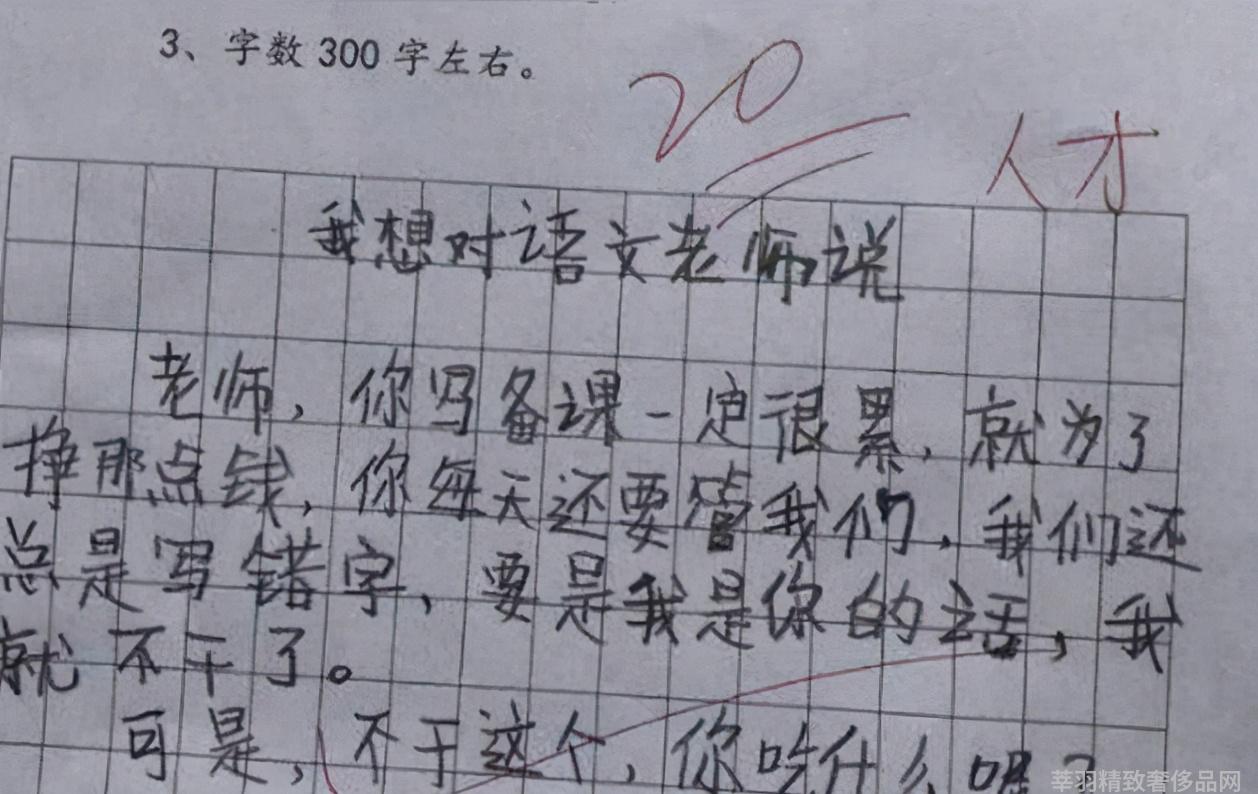 3、字数 300 字左右。
20
人才
我想对语文老师说
老师，你写备课一定很累，就为了
挣那点钱，你每天还要管我们，我们还
总是写错字，要是我是你的话，我
就不干了。
可是，不干这个，你吃什么呢？
莘羽精致奢侈品网